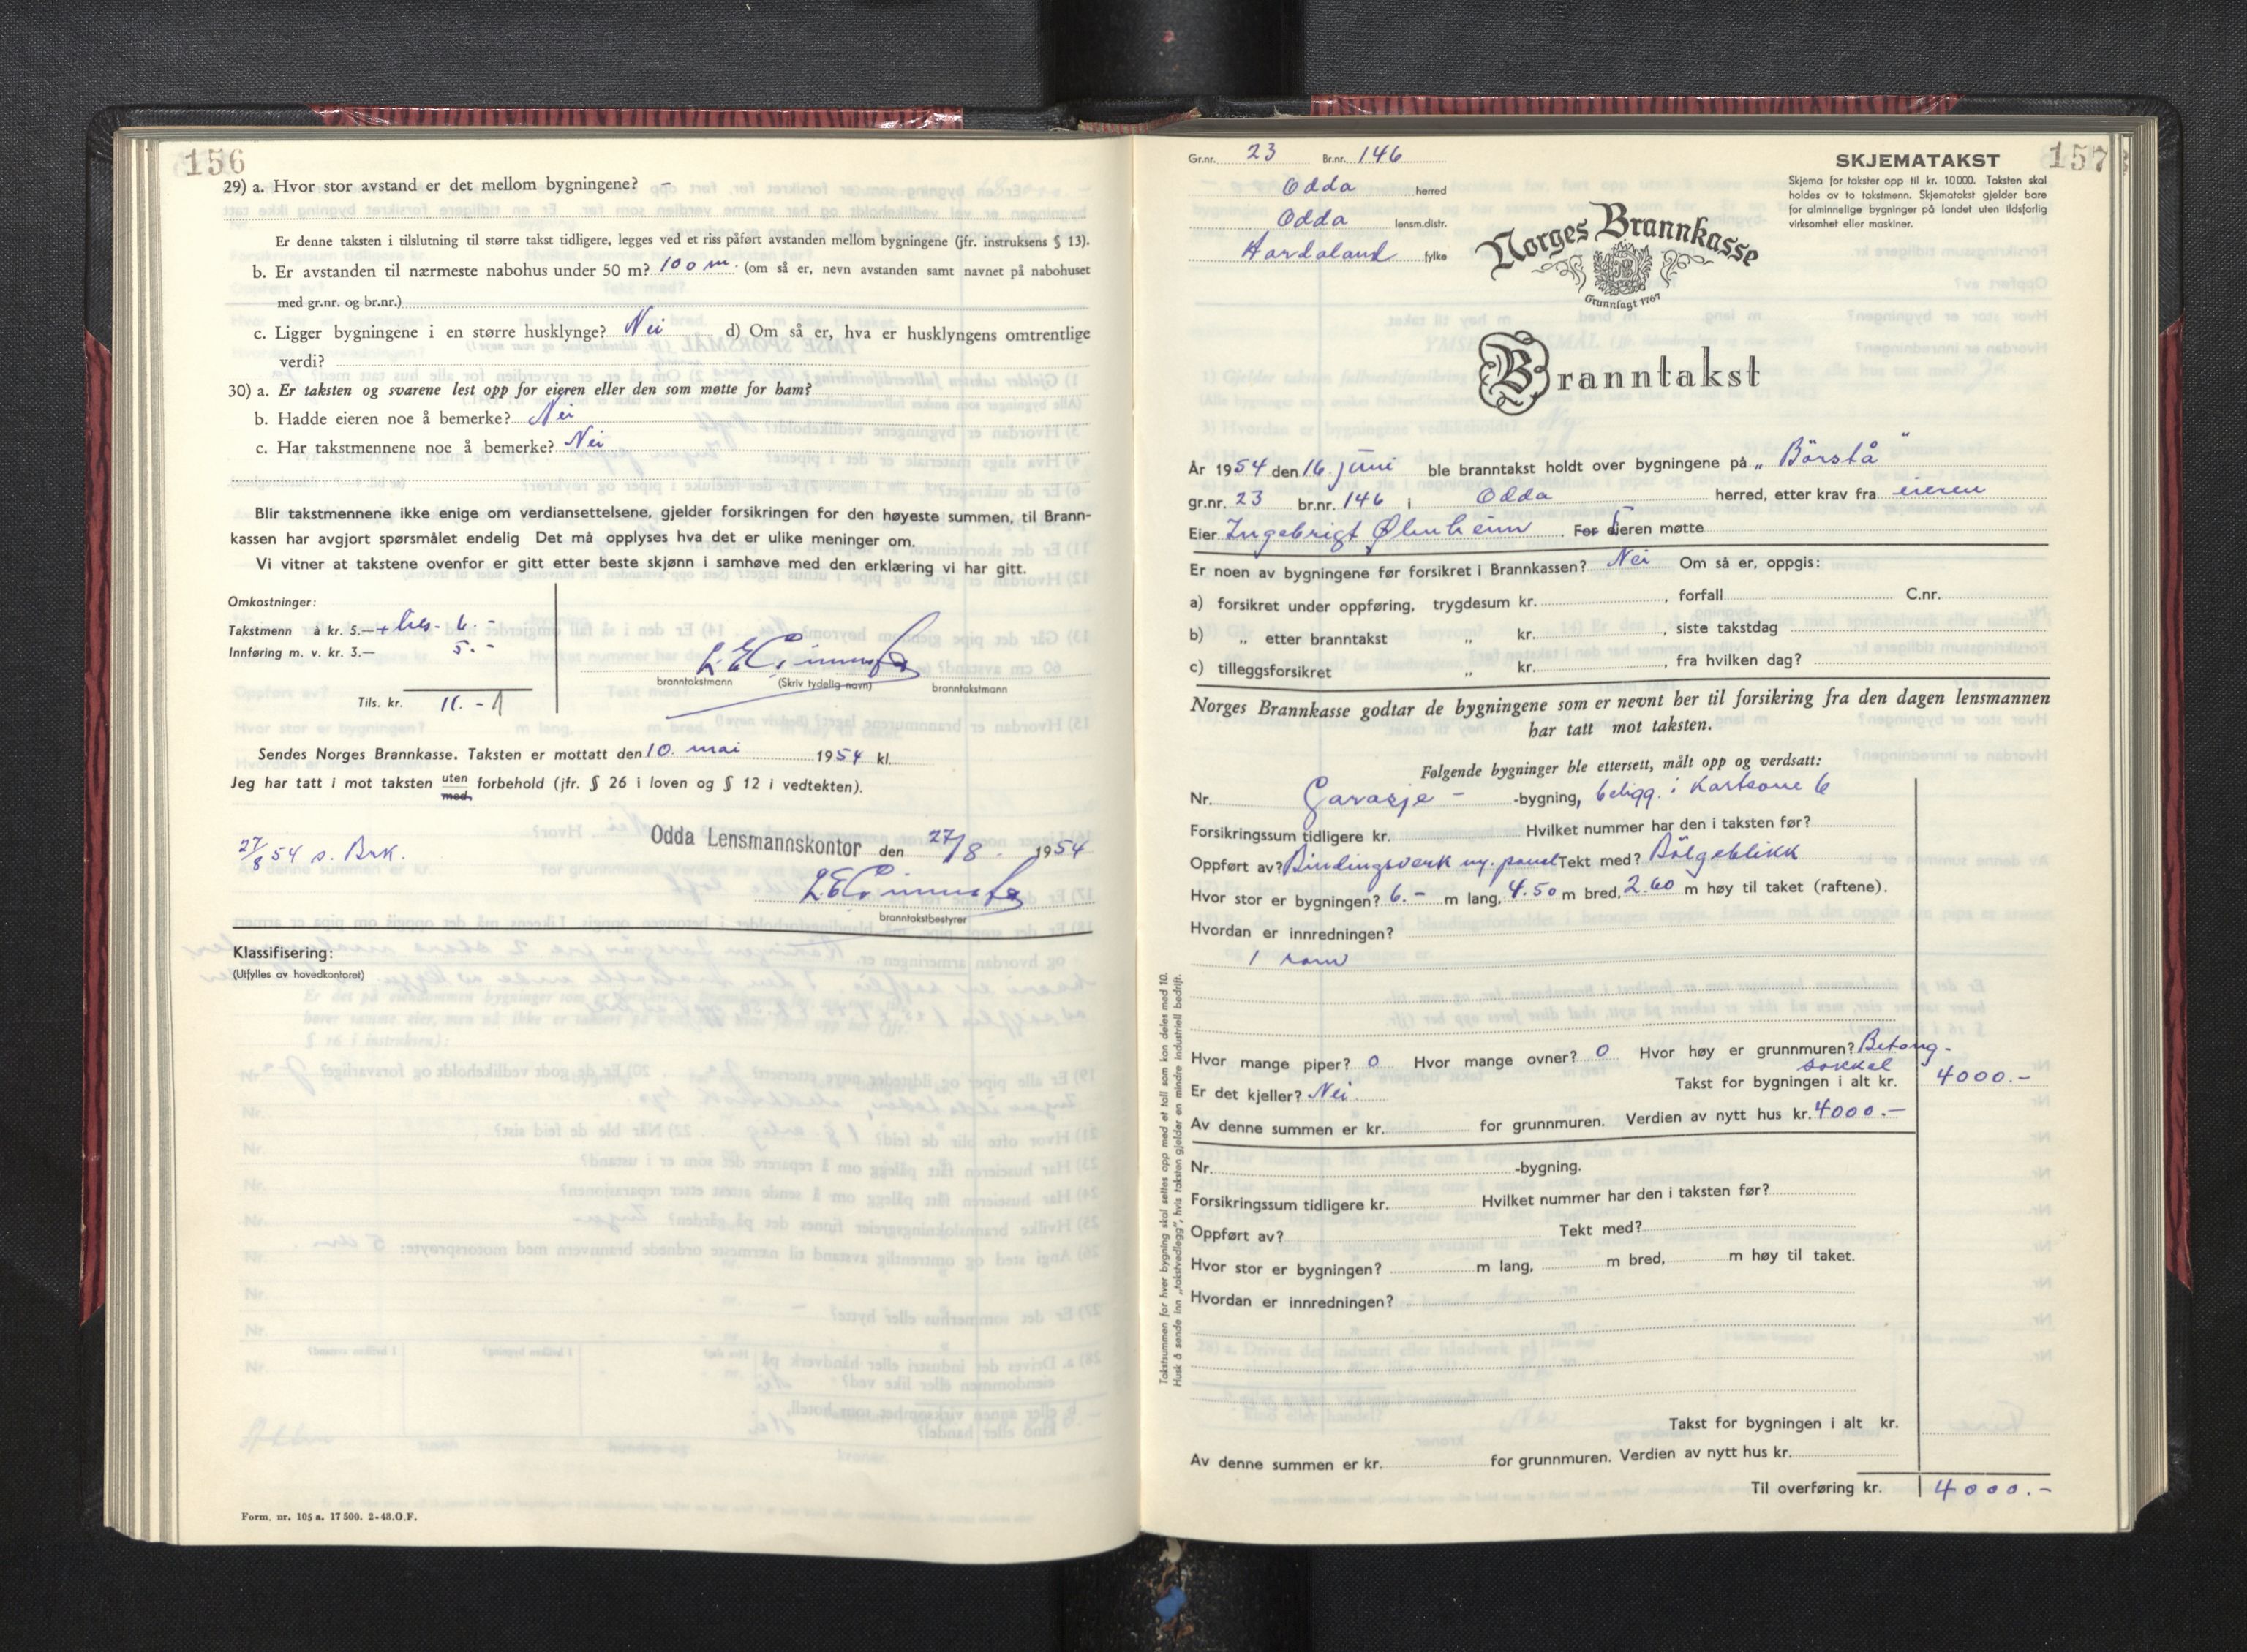 156
29) a. Hvor stor avstand er det mellom bygningene? –
Er denne taksten i tilslutning til større takst tidligere, legges ved et riss påført avstanden mellom bygningene (jfr. instruksens § 13).
b. Er avstanden til nærmeste nabohus under 50 m? 100 m. (om så er, nevn avstanden samt navnet på nabohuset
med gr.nr. og br.nr.)
c. Ligger bygningene i en større husklynge? Nei d) Om så er, hva er husklyngens omtrentlige
verdi?
30) a. Er taksten og svarene lest opp for eieren eller den som møtte for ham?
b. Hadde eieren noe å bemerke? Nei
c. Har takstmennene noe å bemerke? Nei
Blir takstmennene ikke enige om verdiansettelsene, gjelder forsikringen for den høyeste summen, til Brann-
kassen har avgjort spørsmålet endelig Det må opplyses hva det er ulike meninger om.
Vi vitner at takstene ovenfor er gitt etter beste skjønn i samhøve med den erklæring vi har gitt.
Omkostninger:
Takstmenn à kr. 5.— + 6. -
Innføring m. v. kr. 3.— 5. -
Tils. kr. 11. -
branntakstmann (Skriv tydelig navn) branntakstmann
Sendes Norges Brannkasse. Taksten er mottatt den 10. mai 1954 kl.
Jeg har tatt i mot taksten uten forbehold (jfr. § 26 i loven og § 12 i vedtekten).
med
27/8 54 s. Brk.
Odda Lensmannskontor den 27/8 . 1954
branntakstbestyrer
Klassifisering:
(Utfylles av hovedkontoret)
Form. nr. 105 a. 17 500. 2-48. O.F.
157
Gr.nr. 23 Br.nr. 146
Odda herred
Odda lensm.distr.
Hordaland fylke
SKJEMATAKST
Skjema for takster opp til kr. 10000. Taksten skal
holdes av to takstmenn. Skjematakst gjelder bare
for alminnelige bygninger på landet uten ildsfarlig
virksomhet eller maskiner.
Norges Brannkasse
Grunnlagt 1767
Branntakst
År 1954 den 16. juni ble branntakst holdt over bygningene på „ Börstå "
gr.nr. 23 br.nr. 146 i Odda herred, etter krav fra eieren
Eier Ingebrigt Ølnheim . For Eieren møtte
Er noen av bygningene før forsikret i Brannkassen? Nei Om så er, oppgis:
a) forsikret under oppføring, trygdesum kr. , forfall C.nr.
b) „ etter branntakst „ kr. , siste takstdag
c) tilleggsforsikret „ kr. , fra hvilken dag?
Norges Brannkasse godtar de bygningene som er nevnt her til forsikring fra den dagen lensmannen
har tatt mot taksten.
Følgende bygninger ble ettersett, målt opp og verdsatt:
Nr. Garasje – -bygning, beligg. i Kartsone 6
Forsikringssum tidligere kr. Hvilket nummer har den i taksten før?
Oppført av? Bindingsverk Tekt med? Bölgeblikk
Hvor stor er bygningen? 6. - m lang, 4.50 m bred, 2.60 m høy til taket (raftene).
Hvordan er innredningen?
1 rom
Hvor mange piper? 0 Hvor mange ovner? 0 Hvor høy er grunnmuren? Betong-
sokkel
Er det kjeller? Nei. Takst for bygningen i alt kr. 4000.-
Av denne summen er kr. for grunnmuren. Verdien av nytt hus kr. 4000.-
Nr. -bygning.
Forsikringssum tidligere kr. Hvilket nummer har den i taksten før?
Oppført av? Tekt med?
Hvor stor er bygningen? m lang, m bred, m høy til taket.
Hvordan er innredningen?
Takst for bygningen i alt kr.
Av denne summen er kr. for grunnmuren. Verdien av nytt hus kr.
Til overføring kr. 4000.-
Takstsummen for hver bygning skal settes opp med et tall som kan deles med 10.
Husk å sende inn „takstvedlegg", hvis taksten gjelder en mindre industriell bedrift.